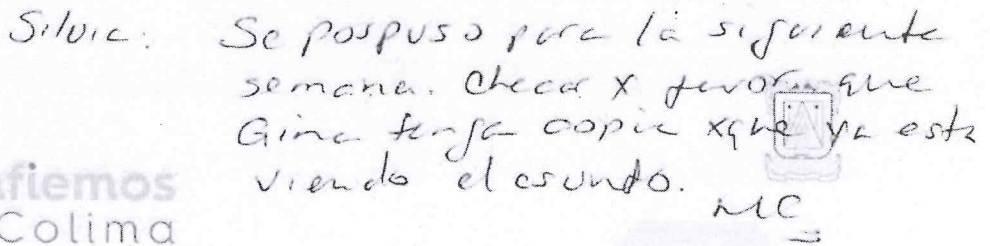 Silvia: Se pospuso para la siguiente
semana. Checar x favor que
Gina tenga copia xque ya esta
viendo el asunto.
MC
afiemos
Colima